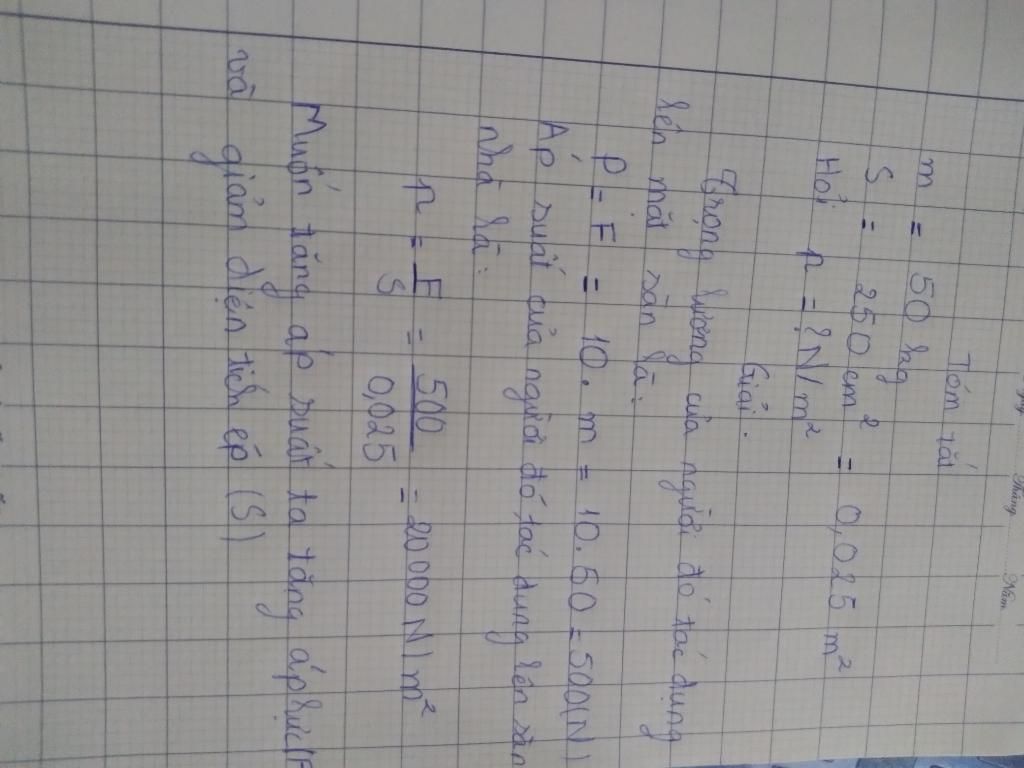 Tháng Năm
Tóm tắt
m = 50 kg
S = 250 cm² = 0,025 m²
Hỏi p = ? N/m²
Giải.
Trọng lượng của người đó tác dụng
lên mặt sàn là:
P = F = 10. m = 10.50 = 500(N)
Áp suất của người đó tác dụng lên sàn
nhà là:
p = F/S = 500/0,025 = 20000 N/m²
Muốn tăng áp suất ta tăng áp lực(F
và giảm diện tích ép (S)